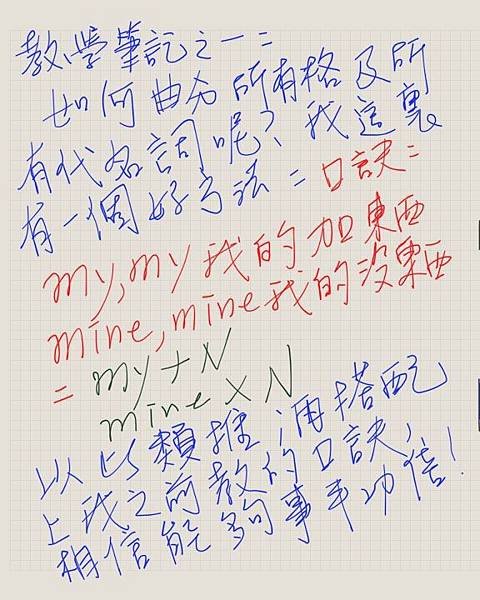 教學筆記之一：
如何曲分所有格及所
有代名詞呢？我這裏
有一個好方法：口訣：
my, my 我的加東西
mine, mine 我的沒東西
= my + N
mine × N
以此類推，再搭配
上我之前教的口訣，
相信能夠事半功倍！